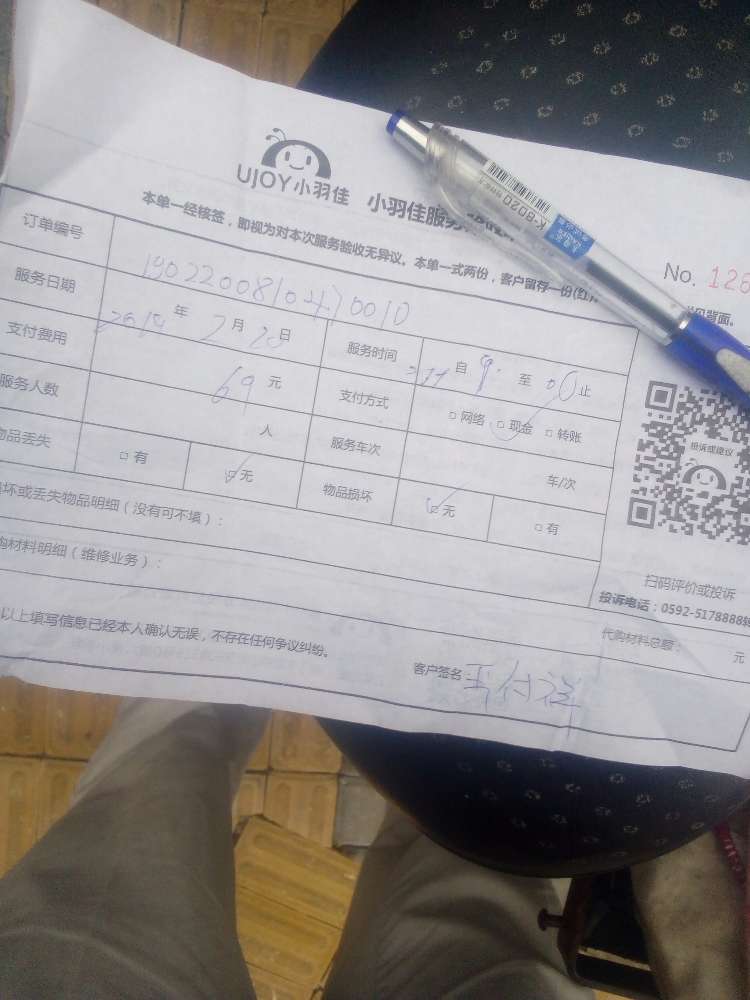 UJOY小羽佳 小羽佳服务
本单一经核签，即视为对本次服务验收无异议。本单一式两份，客户留存一份(红)
No. 126
背面。
订单编号
服务日期 年 2月20日 服务时间 自 9. 至 止
支付费用 69元 支付方式 □网络 □现金 □转账
服务人数 人 服务车次 车/次
物品丢失 □有 □无 物品损坏 □无 □有
坏或丢失物品明细（没有可不填）：
购材料明细（维修业务）：
投诉或建议
扫码评价或投诉
投诉电话：0592-5178888
代购材料总额： 元
以上填写信息已经本人确认无误，不存在任何争议纠纷。
客户签名
K-8020